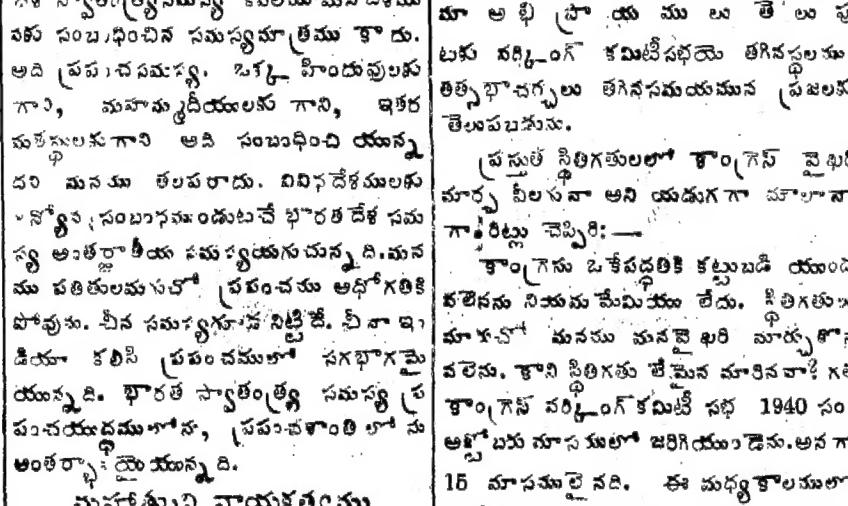 స్వాతంత్ర్యసమస్య కేవలము మన దేశము
నకు సంబంధించిన సమస్యమాత్రము కాదు.
అది ప్రపంచసమస్య. ఒక్క హిందువులకు
గాని, మహమ్మదీయులకు గాని, ఇతర
మతస్థులకు గాని అది సంబంధించి యున్న
దని మనము తలపరాదు. వివిధదేశములకు
అన్యోన్య సంబంధముండుటచే భారత దేశ సమ
స్య అంతర్జాతీయ సమస్యయగుచున్నది. మన
ము పతితులమగుచో ప్రపంచము అధోగతికి
పోవును. చీన సమస్యగూడ నిట్టిదే. చీనా ఇం
డియా కలిసి ప్రపంచములో సగభాగమై
యున్నది. భారత స్వాతంత్ర్య సమస్య ప్ర
పంచయుద్ధములోను, ప్రపంచశాంతి లోను
అంతర్భాగమై యున్నది.
మహాత్ముని నాయకత్వము
మా అభిప్రాయములు తెలుపు
టకు వర్కింగ్ కమిటీసభయె తగినస్థలము
తత్సభాచర్చలు తగినసమయమున ప్రజలకు
తెలుపబడును.
ప్రస్తుత స్థితిగతులలో కాంగ్రెస్ వైఖరి
మార్చ వీలగునా అని యడుగగా మౌలానా
గారిట్లు చెప్పిరి:—
కాంగ్రెసు ఒకేపద్ధతికి కట్టుబడి యుండ
వలెనను నియమమేమియు లేదు. స్థితిగతులు
మారుచో మనము మనవైఖరి మార్చుకొన
వలెను. కాని స్థితిగతు లేమైన మారినవా?
కాంగ్రెస్ వర్కింగ్ కమిటీ సభ 1940 సం
అక్టోబరు మాసములో జరిగియుండెను. అనగా
15 మాసములైనది. ఈ మధ్యకాలములో